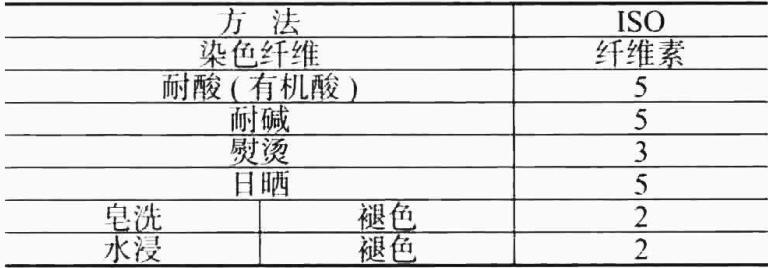 方 法 ISO
染色纤维 纤维素
耐酸(有机酸) 5
耐碱 5
熨烫 3
日晒 5
皂洗 褪色 2
水浸 褪色 2